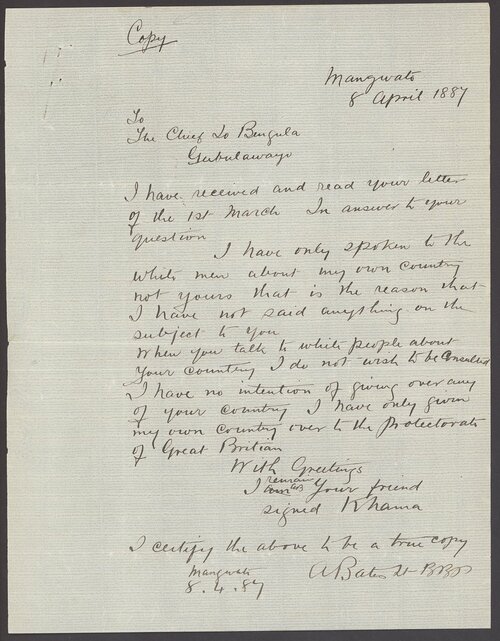 Copy
Mangwato
8 April 1887
To
The Chief Lo Bengula
Gubulawayo
I have received and read your letter
of the 1st March In answer to your
question
I have only spoken to the
white men about my own country
not yours that is the reason that
I have not said anything on the
subject to you
When you talk to white people about
your country I do not wish to be Consulted
I have no intention of giving over any
of your country I have only given
my own country over to the Protectorate
of Great Britian
With Greetings
I remain Your friend
signed Khama
I certify the above to be a true copy
Mangwato
8.4.87
A Bates Lt BBP